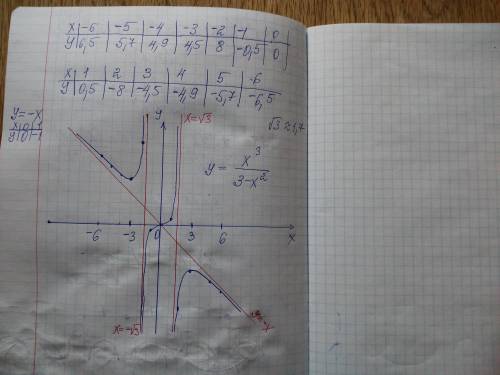 x -6 -5 -4 -3 -2 -1 0
y 6,5 5,7 4,9 4,5 8 -0,5 0
x 1 2 3 4 5 -6
y 0,5 -8 -4,5 -4,9 -5,7 -6,5
y=-x
x 0 1
y 0 -1
y
x=√3
√3≈1,7
y = x³/(3-x²)
-6 -3 0 3 6 x
x=-√3
y=-x